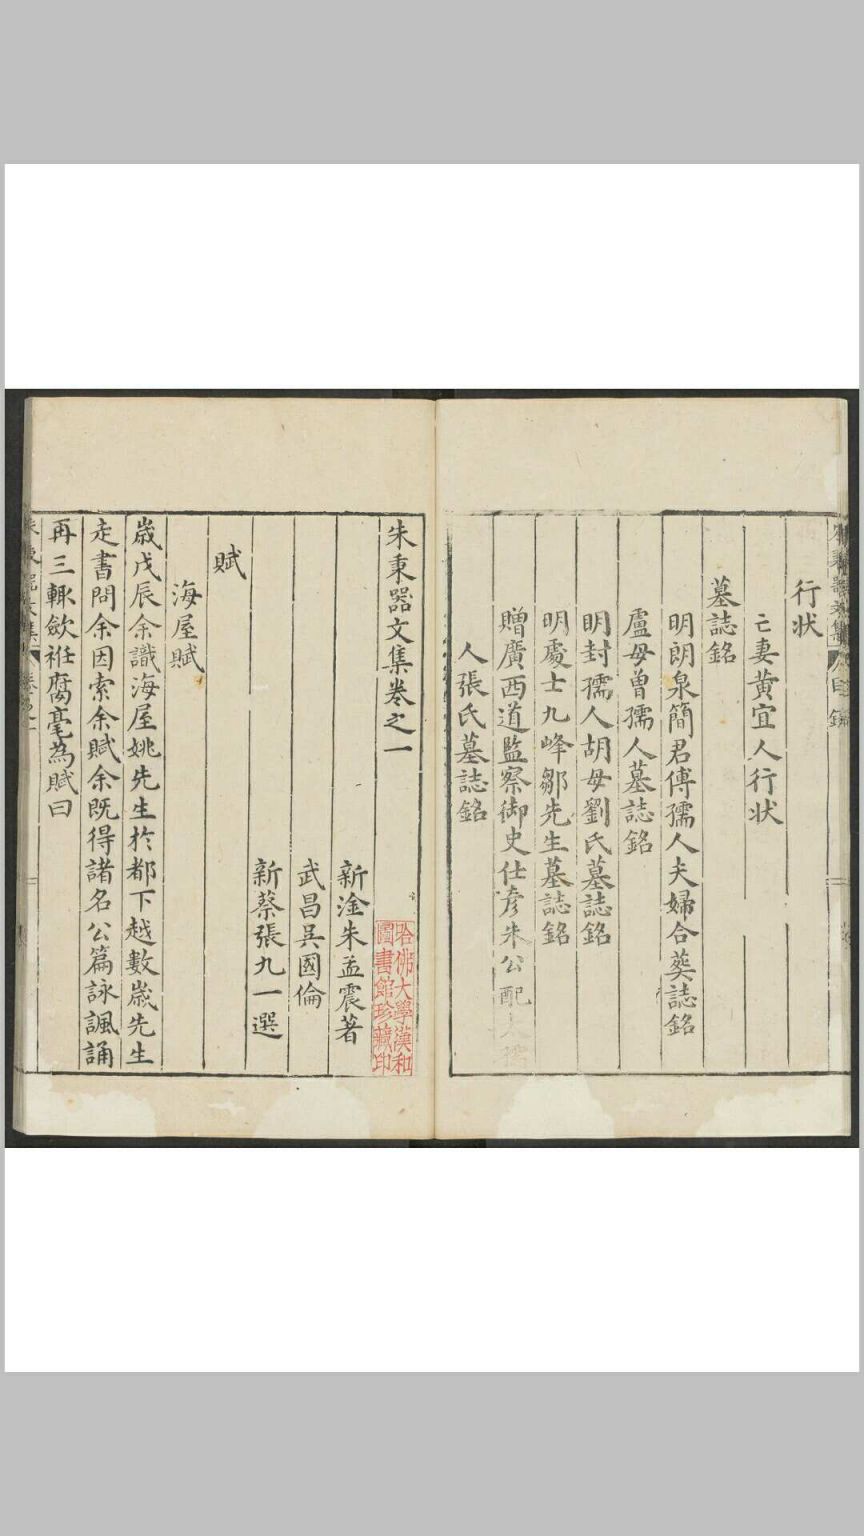 行狀
亡妻黃宜人行狀
墓誌銘
明朗泉簡君傅孺人夫婦合葬誌銘
盧母曾孺人墓誌銘
明封孺人胡母劉氏墓誌銘
明處士九峰鄒先生墓誌銘
贈廣西道監察御史仕彥朱公配
人張氏墓誌銘
朱秉器文集卷之一
哈佛大學漢和
圖書館珍藏印
新淦朱孟震著
武昌吳國倫
新蔡張九一選
賦
海屋賦
歲戊辰余識海屋姚先生於都下越數歲先生
走書問余因索余賦余既得諸名公篇詠諷誦
再三輒歛袵腐毫為賦曰